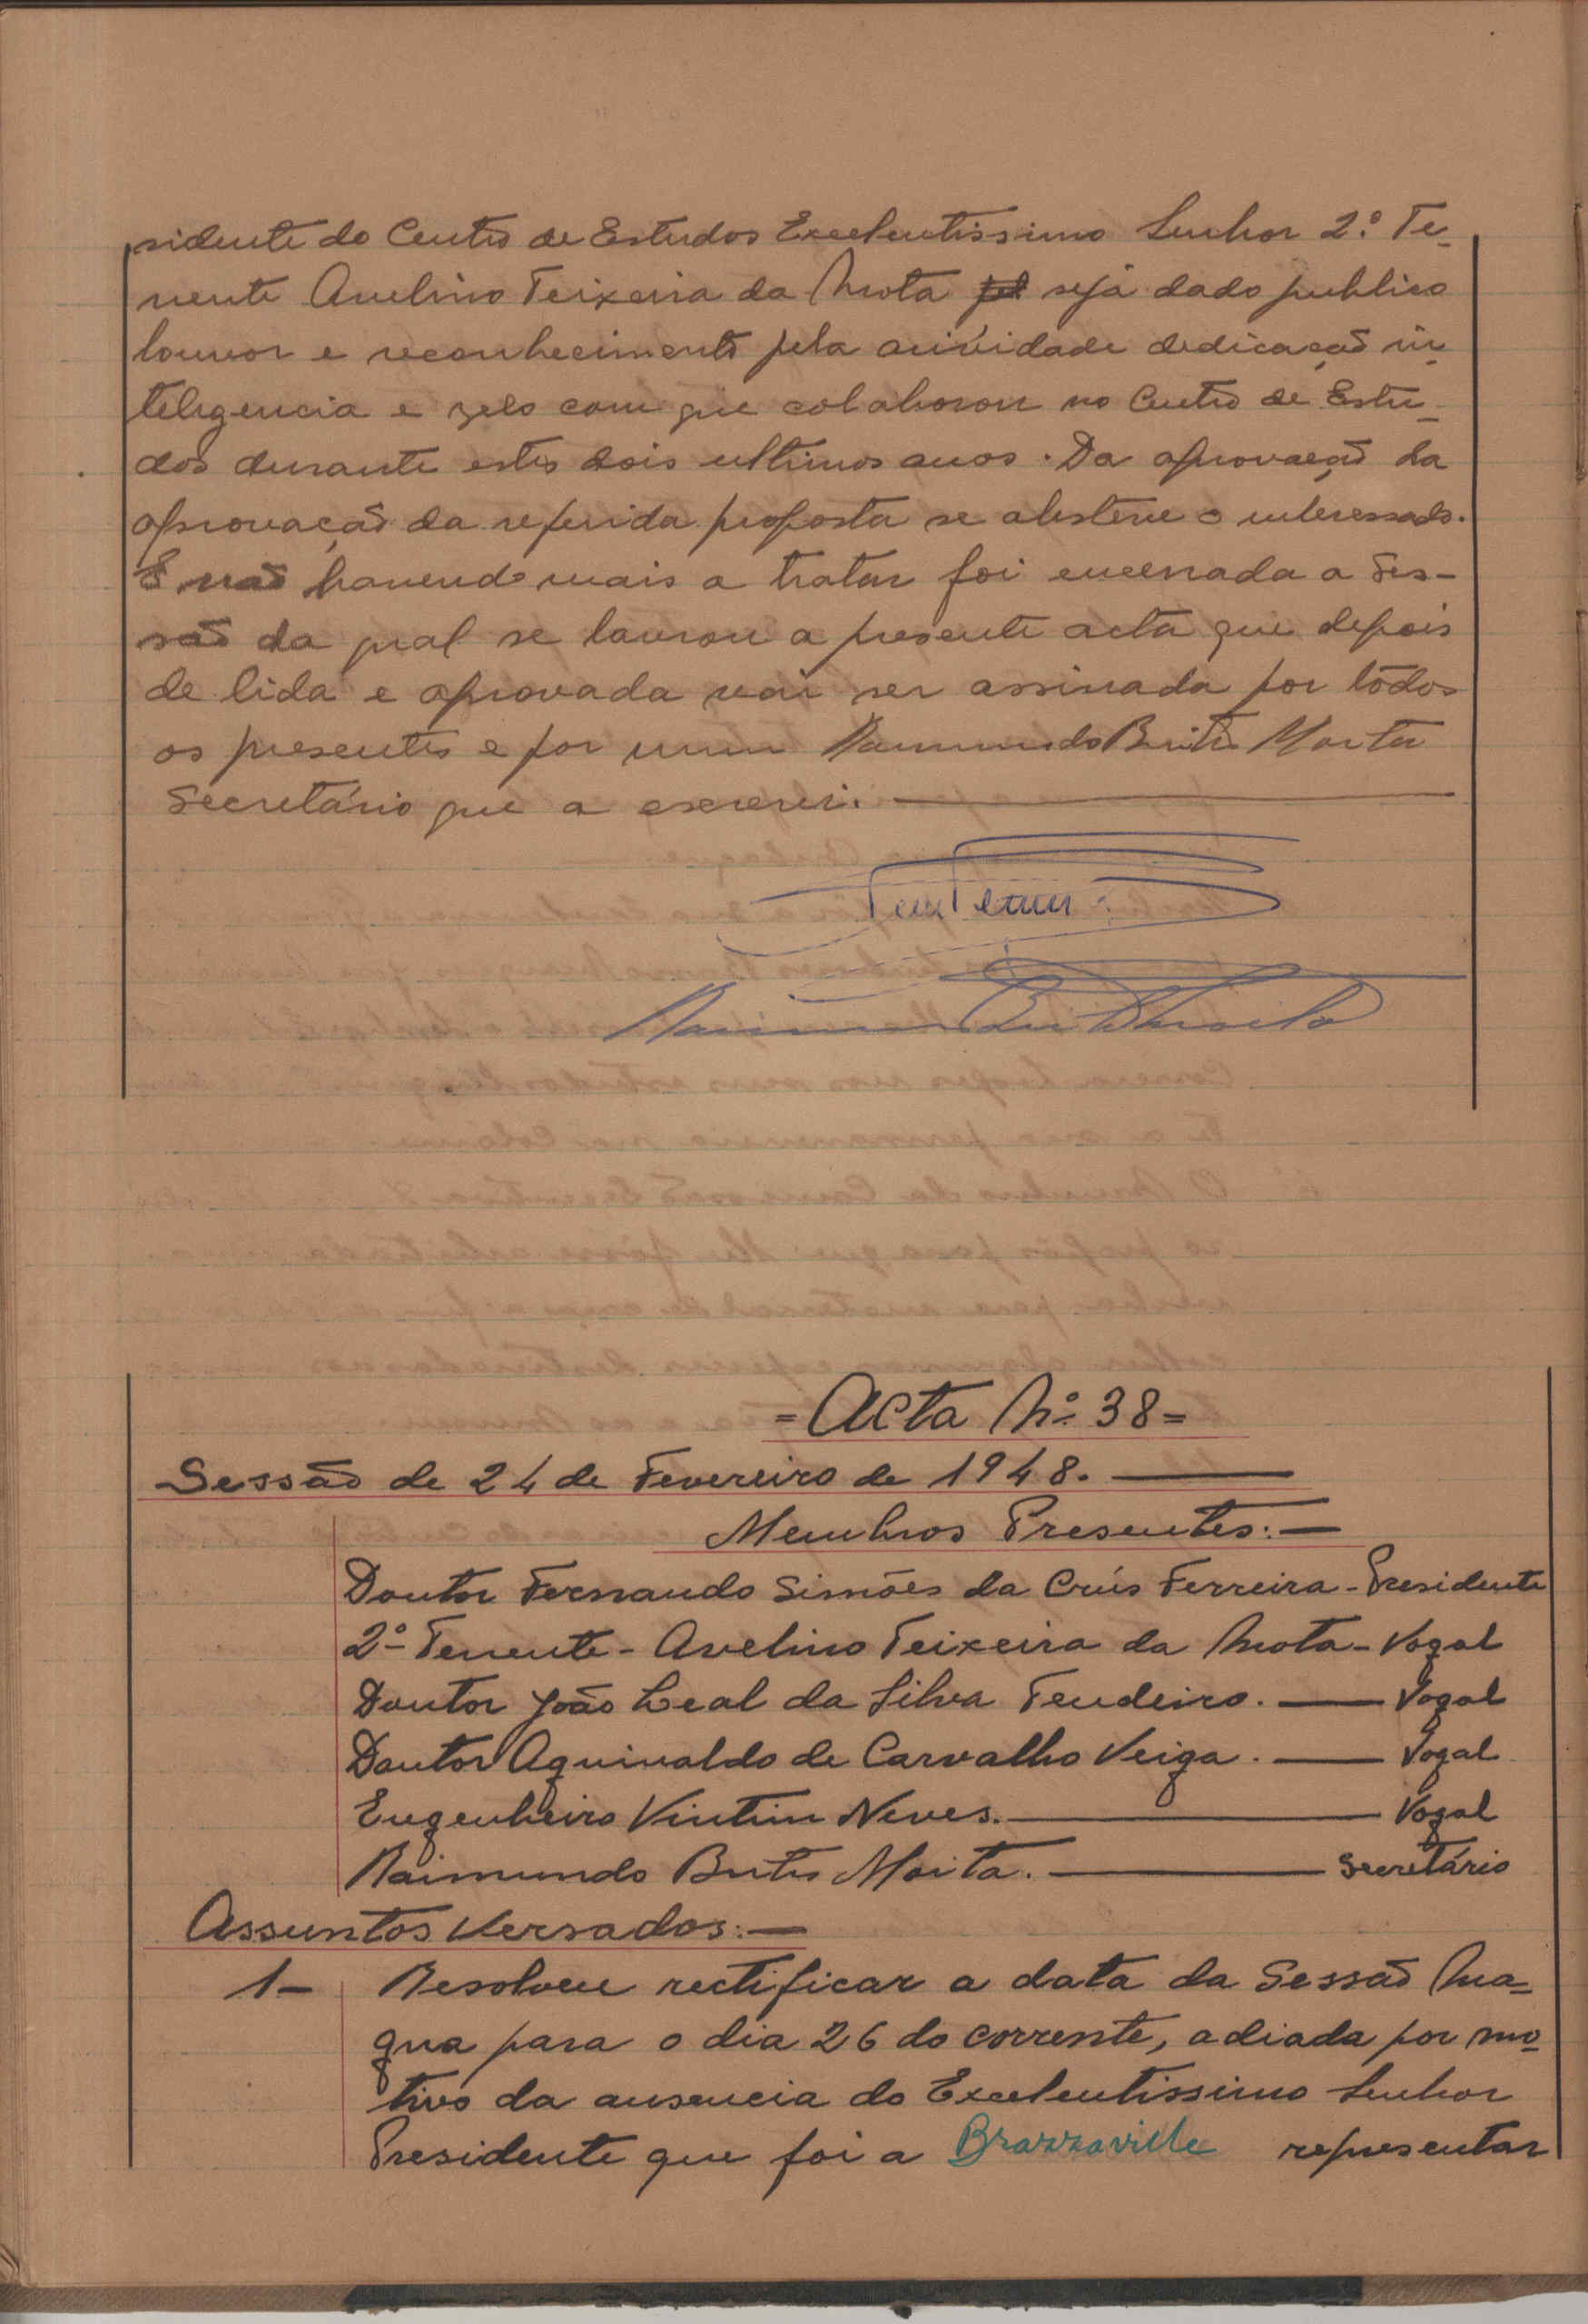 sidente do Centro de Estudos Excelentissimo Senhor 2.º Te-
nente Avelino Teixeira da Mota seja dado publico
louvor e reconhecimento pela actividade dedicação in-
teligencia e zelo com que colaborou no Centro de Estu-
dos durante estes dois ultimos anos. Da aprovação da
aprovação da referida proposta se absteve o interessado.
E não havendo mais a tratar foi encerrada a Ses-
são da qual se lavrou a presente acta que depois
de lida e aprovada vai ser assinada por todos
os presentes e por mim Raimundo Brites Moita
Secretário que a escrevi.
= Acta Nº 38 =
Sessão de 24 de Fevereiro de 1948.
Membros Presentes:-
Doutor Fernando Simões da Crús Ferreira - Presidente
2º Tenente - Avelino Teixeira da Mota - Vogal
Doutor João Leal da Silva Tendeiro. — Vogal
Doutor Aguinaldo de Carvalho Veiga. — Vogal
Engenheiro Vintim Neves. — Vogal
Raimundo Brites Moita. — Secretário
Assuntos Versados:-
1- Resolveu rectificar a data da Sessão Ma-
gna para o dia 26 do corrente, adiada por mo-
tivo da ausencia do Excelentissimo Senhor
Presidente que foi a Brazzaville representar